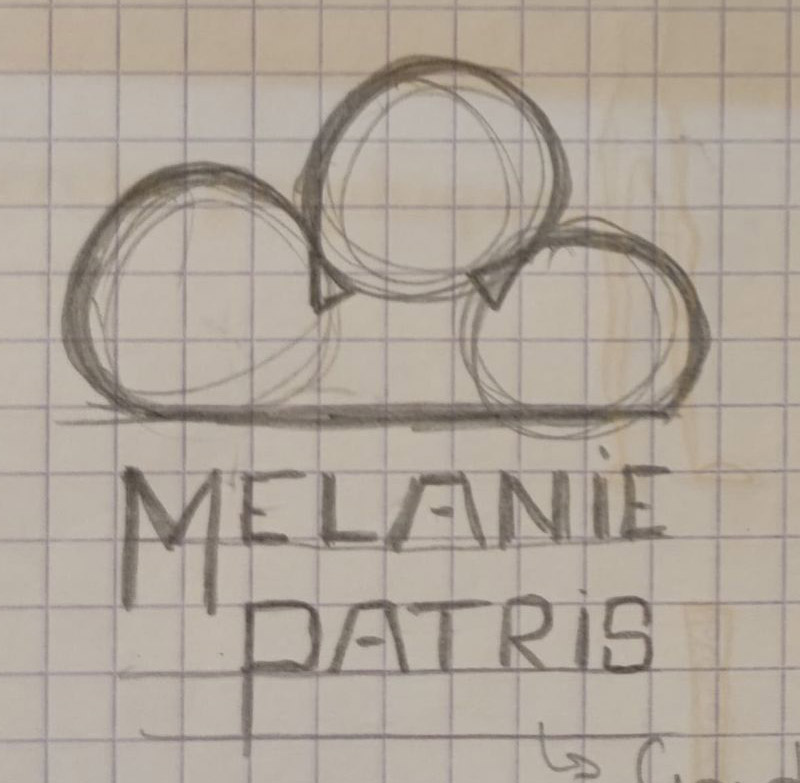 MELANiE
PATRiS